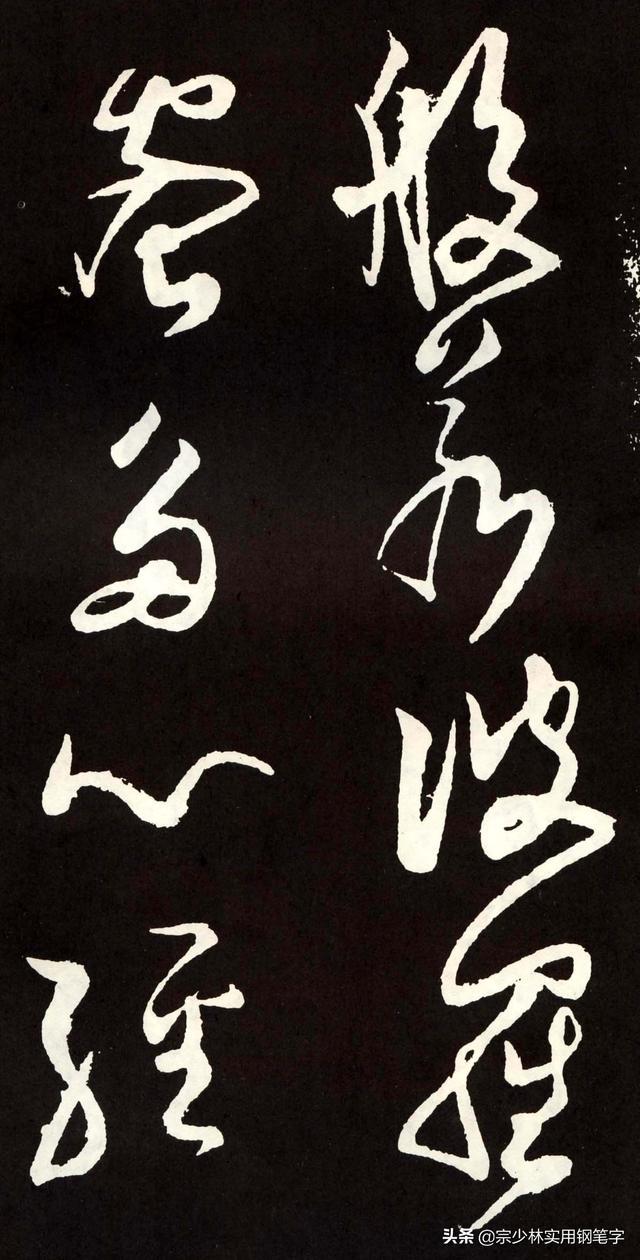 般若波羅
蜜多心經
头条 @宗少林实用钢笔字